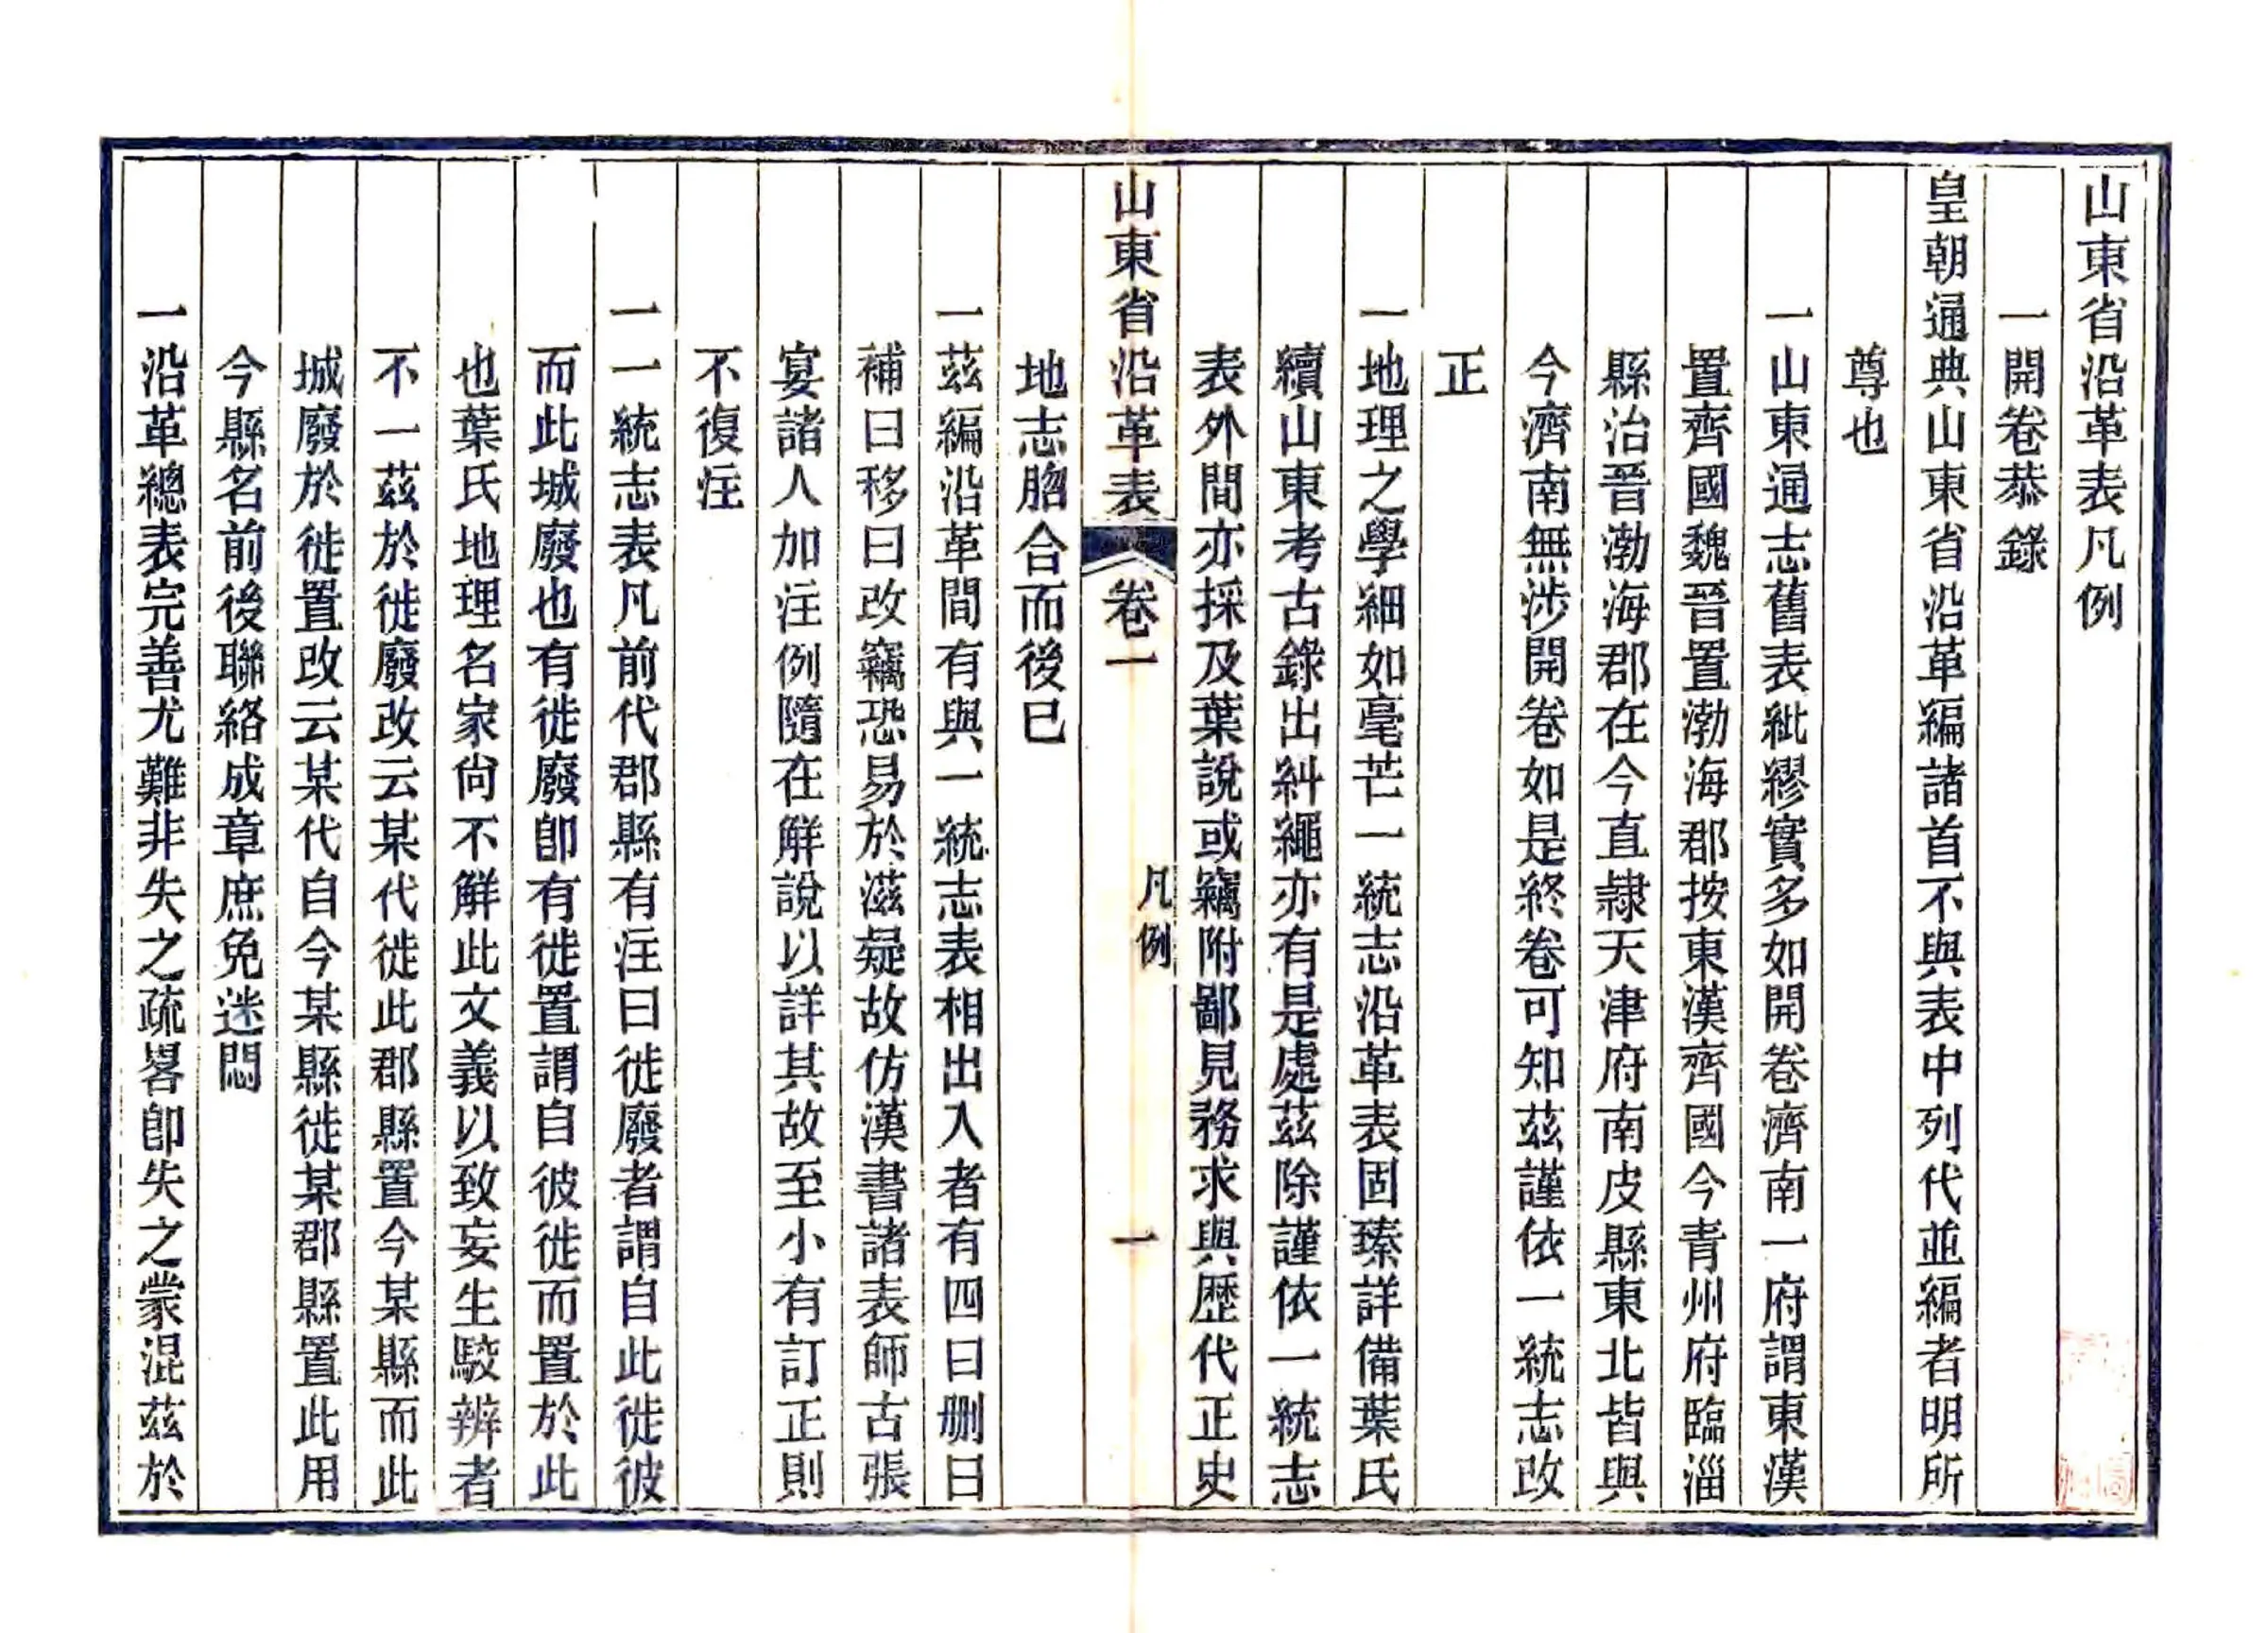 山東省沿革表凡例
一開卷恭錄
皇朝通典山東省沿革編諸首不與表中列代並編者明所
尊也
一山東通志舊表紕繆實多如開卷濟南一府謂東漢
置齊國魏晉置渤海郡按東漢齊國今青州府臨淄
縣治晉渤海郡在今直隸天津府南皮縣東北皆與
今濟南無涉開卷如是終卷可知茲謹依一統志改
正
一地理之學細如毫芒一統志沿革表固臻詳備葉氏
續山東考古錄出糾繩亦有是處茲除謹依一統志
表外間亦採及葉說或竊附鄙見務求與歷代正史
山東省沿革表 卷一 凡例 一
地志脗合而後已
一茲編沿革間有與一統志表相出入者有四曰刪曰
補曰移曰改竊恐易於滋疑故仿漢書諸表師古張
宴諸人加注例隨在觧說以詳其故至小有訂正則
不復注
一一統志表凡前代郡縣有注曰徙廢者謂自此徙彼
而此城廢也有徙廢卽有徙置謂自彼徙而置於此
也葉氏地理名家尙不觧此文義以致妄生駮辨者
不一茲於徙廢改云某代徙此郡縣置今某縣而此
城廢於徙置改云某代自今某縣徙某郡縣置此用
今縣名前後聯絡成章庶免迷悶
一沿革總表完善尤難非失之疏畧卽失之蒙混茲於